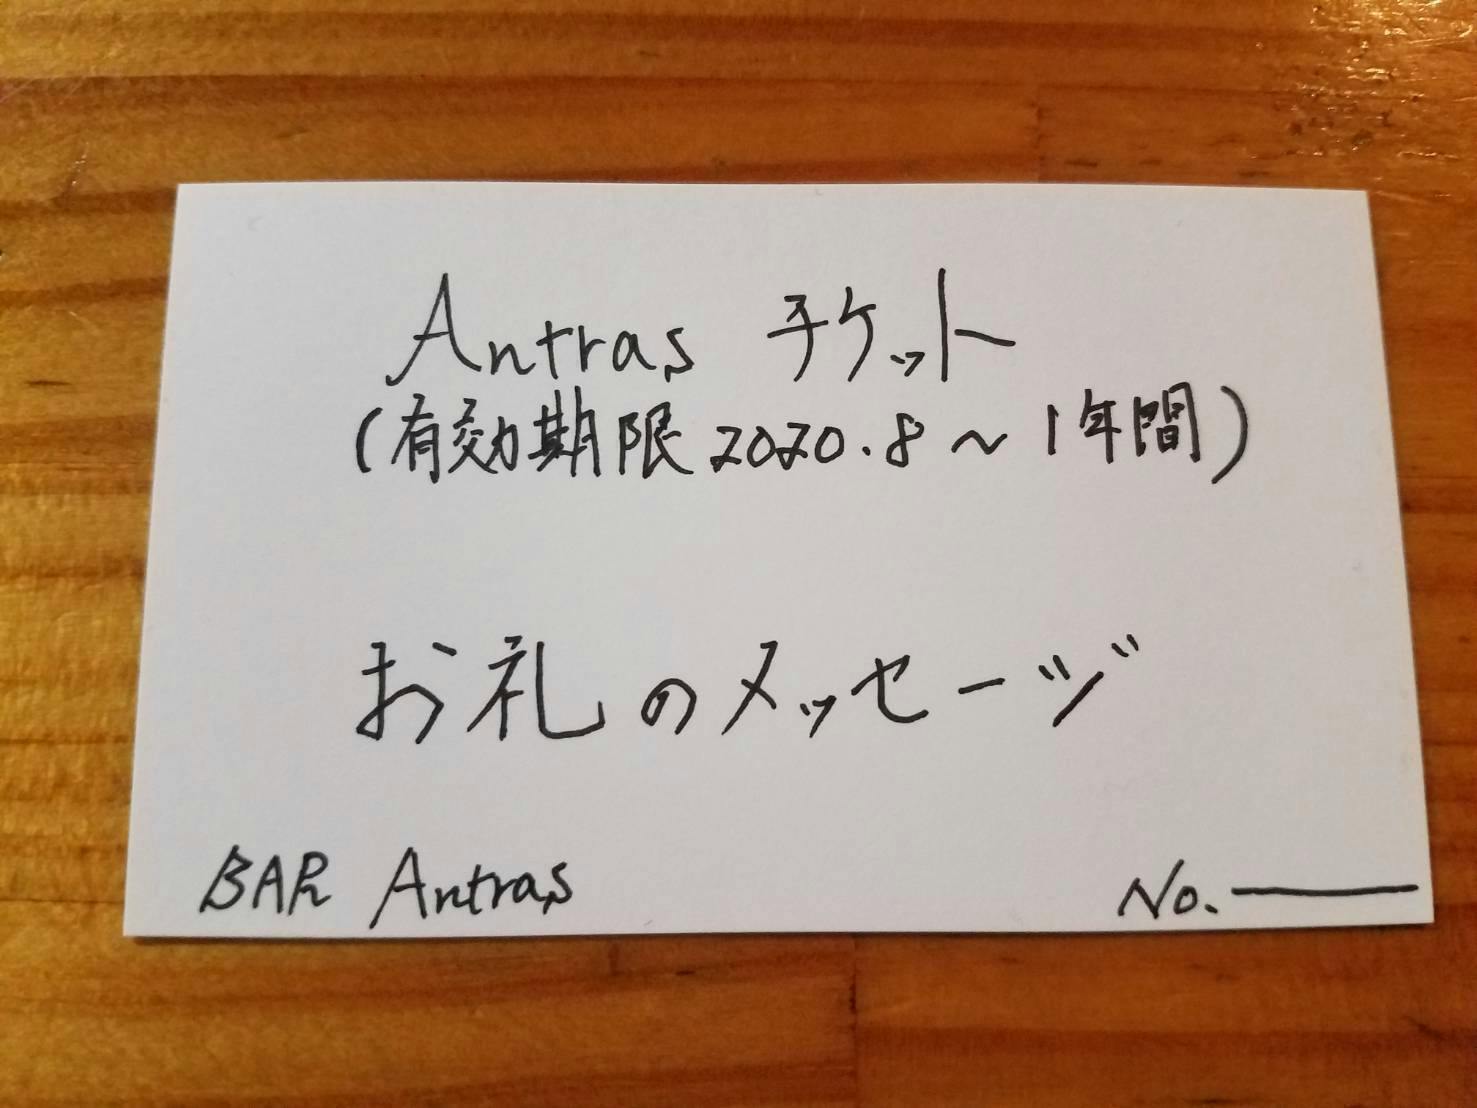 Antras チケット
(有効期限 2020.8 ~ 1年間)
お礼のメッセージ
BAR Antras
No.